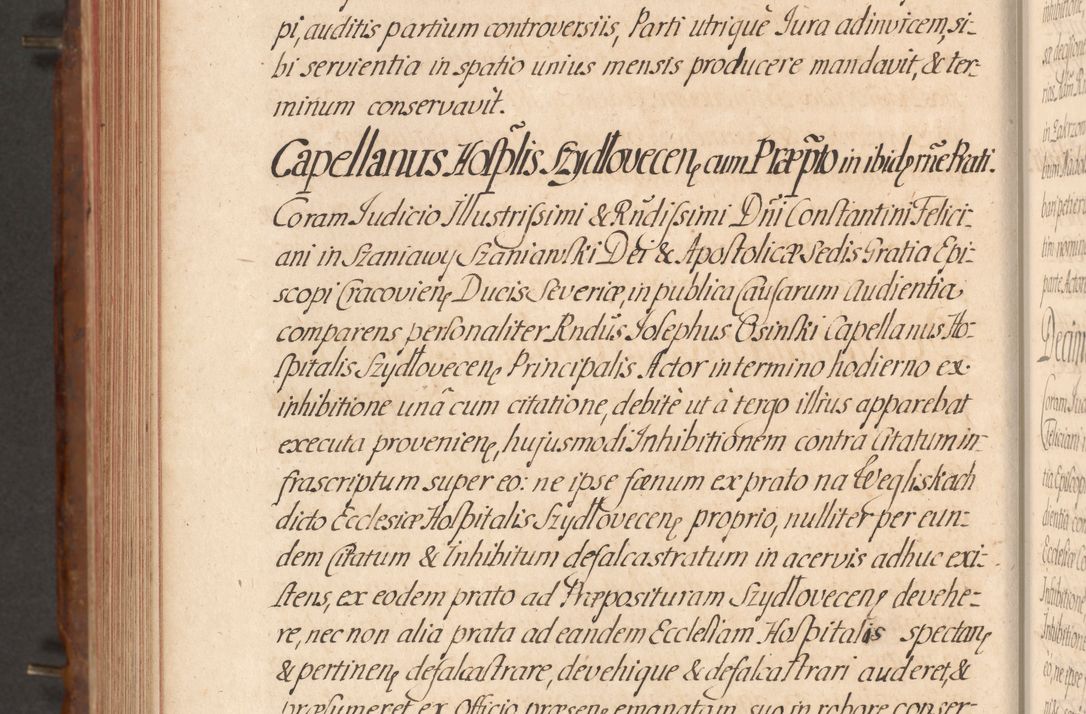 pi, auditis partium controversiis, Parti utrique Jura adinvicem, si-
bi servientia in spatio unius mensis producere mandavit, & ter-
minum conservavit.
Capellanus Hosplis Szydłovecen cum Præpto in ibid rñe Prati.
Coram Judicio Illustrissimi & Rñdissimi Dñi Constantini Felici-
ani in Szaniawy Szaniawski Dei & Apostolicæ Sedis Gratia Epi-
scopi Cracovien Ducis Severiæ, in publica Causarum Audientia
comparens personaliter Rndus Josephus Osinski Capellanus Ho-
spitalis Szydłovecen Principalis Actor in termino hodierno ex
inhibitione unâ cum citatione, debitè ut à tergo illius apparebat
executa provenien, hujusmodi Inhibitionem contra Citatum in-
frascriptum super eo: ne ipse fænum ex prato na Wegliskach
dicto Ecclesiæ Hospitalis Szydłovecen proprio, nulliter per eun-
dem Citatum & Inhibitum defalcastratum in acervis adhuc exi-
stens, ex eodem prato ad Præposituram Szydłovecen devehe-
re, nec non alia prata ad eandem Ecclesiam Hospitalis spectan
& pertinen defalcastrare, devehique & defalcastrari auderet, &
præsumeret ex Officio præsen emanatam, suo in robore conser-